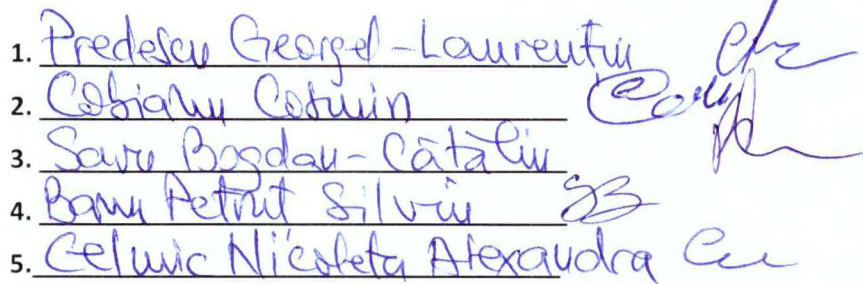 1. Predescu Georgel-Laurențiu
2. Cobianu Cosmin
3. Savu Bogdan-Cătălin
4. Banu Petruț Silviu SB
5. Nicoleta Alexandra